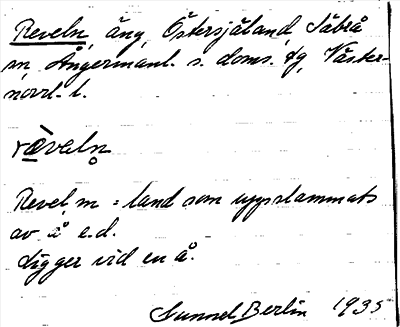 Reveln, äng, Östersjäland, Säbrå
sn, Ångermanl. s. doms. dg, Väster-
norrl. l.
ræ̀veln̥
Revel m = land som uppslammats
av å e.d.
Ligger vid en å.
Gunnel Berlin 1935